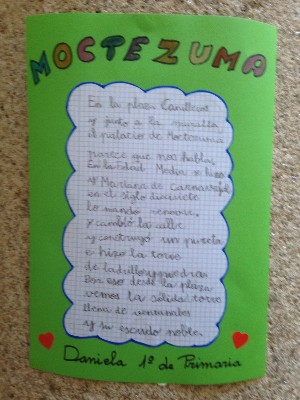 MOCTEZUMA
En la plaza Canilleros
y junto a la muralla
el palacio de Moctezuma
parece que nos habla.
En la Edad Media se hizo
y Mariana de Carnavajal
en el siglo diecisiete
lo mandó renovar.
y cambió la calle
y construyó un puerta
e hizo la torre
de ladrillo y piedras
Por eso desde la plaza
vemos la sólida torre
llena de ventanales
y su escudo noble.
Daniela 1º de Primaria